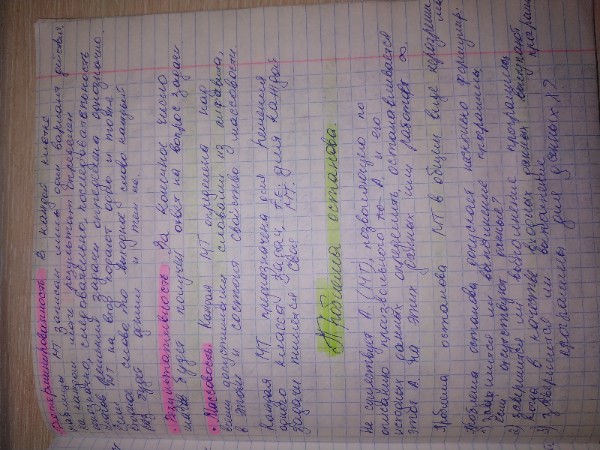 Детерминированность. В каждой клетке
таблицы МТ записан лишь один вариант действия.
На каждом шаге результат определен
однозначно, следовательно, последовательность
шагов решения задачи определена однозначно.
Если МТ на вход подают одно и тоже
входное слово то выходное слово каждый
раз будет одним и тем же.
• Результативность. За конечное число
шагов будет получен ответ на вопрос задачи
• Массовость. Каждая МТ определена над
всеми допустимыми словами из алфавита,
в этом и состоит свойство массовости.
Каждая МТ предназначена для решения
одного класса задач, т.е. для каждой
задачи пишется своя МТ.
Проблема останова.
Не существует А. (МТ), позволяющего по
описанию произвольного А. и его
исходных данных определить, останавливается
этот А. на этих данных или работает ∞.
Проблема останова МТ в общем виде неразреши
ма
Проблема останова допускает несколько формулир.
1) завершится ли выполнение программы
если отсутствуют данные?
2) завершится ли выполнение программы
когда в качестве входных данных выступают
3) завершится ли выполнение
программы для данных х?